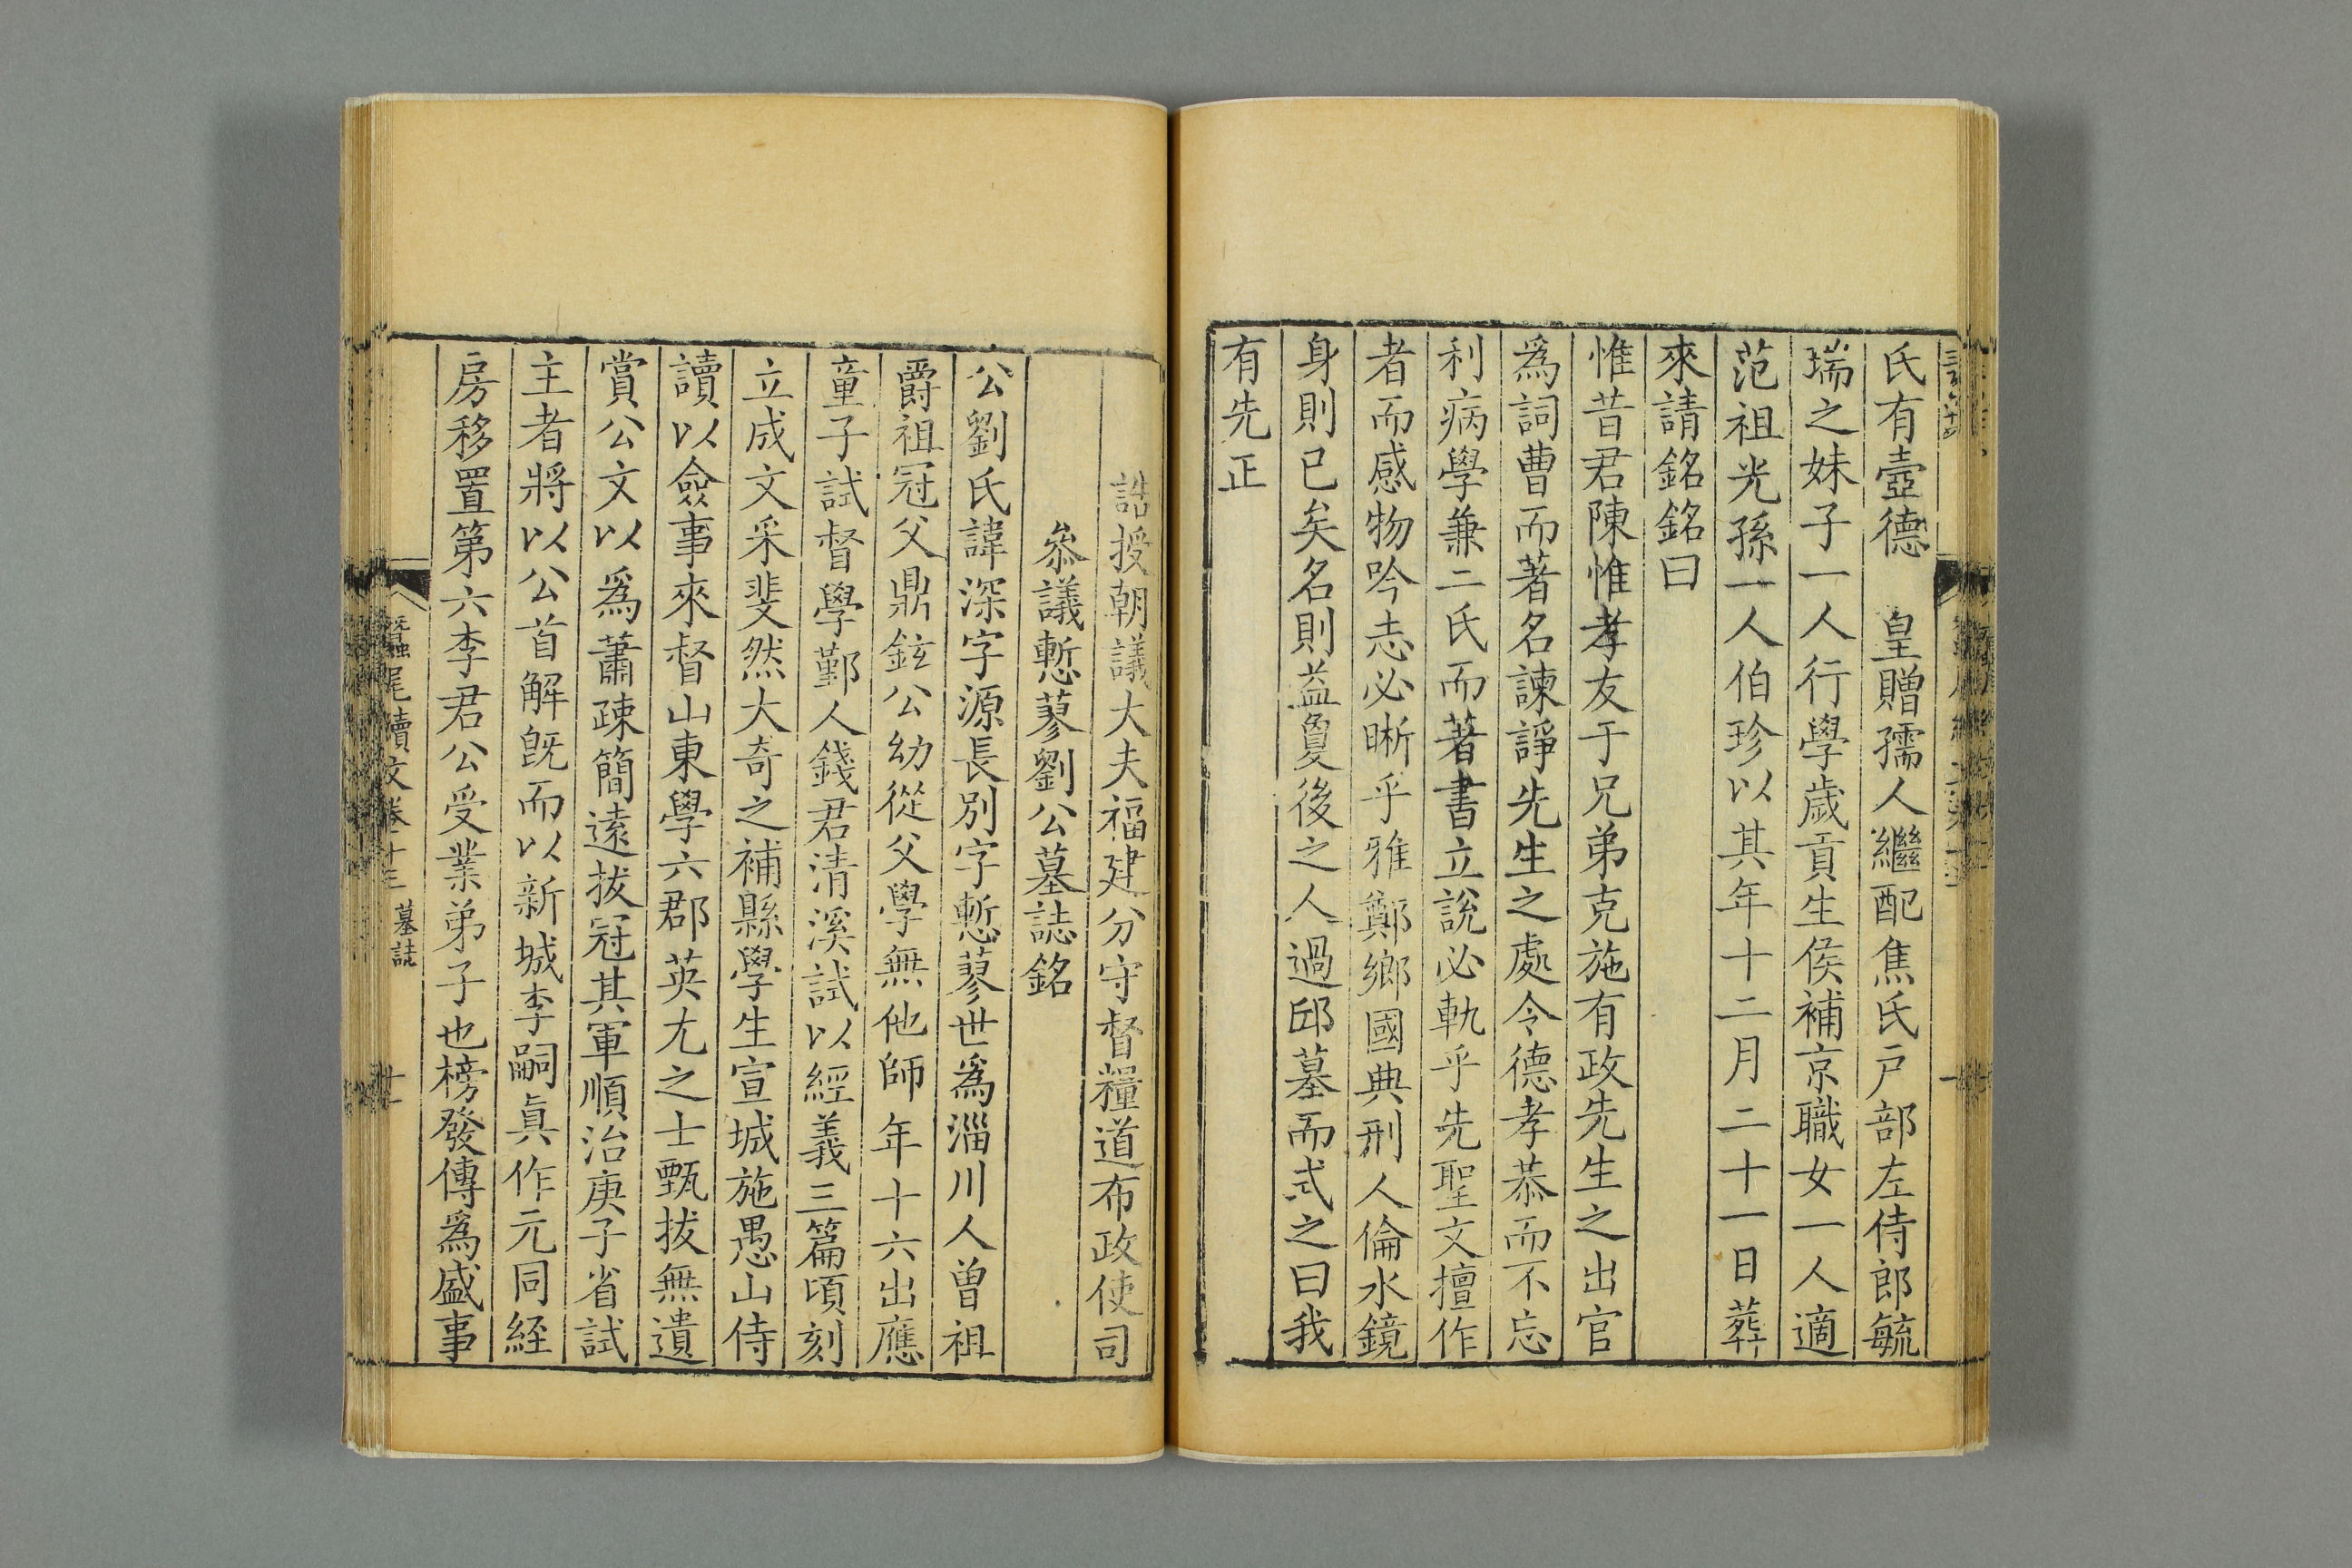 氏有壼德　皇贈孺人繼配焦氏戸部左侍郎毓
瑞之妹子一人行學歲貢生候補京職女一人適
范祖光孫一人伯珍以其年十二月二十一日葬
來請銘銘曰
惟昔君陳惟孝友于兄弟克施有政先生之出官
爲詞曹而著名諫諍先生之處令德孝恭而不忘
利病學兼二氏而著書立說必軌乎先聖文擅作
者而感物吟志必晰乎雅鄭鄉國典刑人倫水鏡
身則已矣名則益敻後之人過邱墓而式之曰我
有先正
誥授朝議大夫福建分守督糧道布政使司
叅議慙蓼劉公墓誌銘
公劉氏諱深字源長別字慙蓼世爲淄川人曾祖
爵祖冠父鼎鉉公幼從父學無他師年十六出應
童子試督學鄞人錢君清溪試以經義三篇頃刻
立成文采斐然大奇之補縣學生宣城施愚山侍
讀以僉事來督山東學六郡英尤之士甄拔無遺
賞公文以爲蕭疎簡遠拔冠其軍順治庚子省試
主者將以公首解旣而以新城李嗣眞作元同經
房移置第六李君公受業弟子也榜發傳爲盛事
蠶尾續文卷十三　墓誌